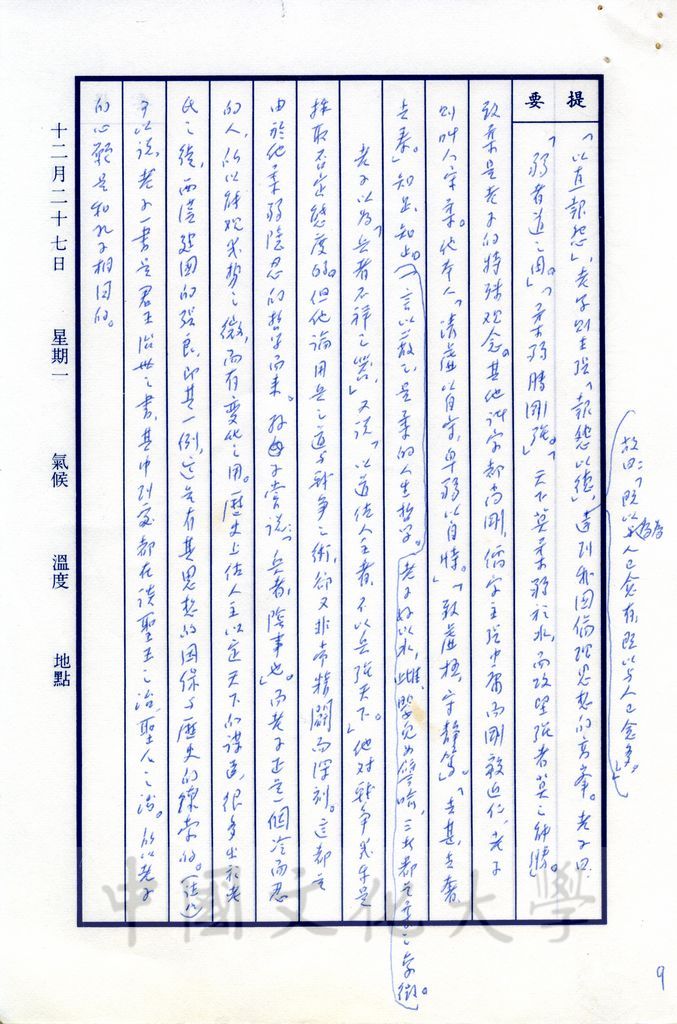 提要
「以直報怨」，老子則主張「報怨以德」，達到我國倫理思想的高峯。老子曰：
故曰：「既以為人己愈有，既以與人己愈多。」
「弱者道之用。」「柔弱勝剛強。」「天下莫柔弱於水，而攻堅強者莫之能勝」。
致柔是老子的特殊观念。其他諸家都尚剛，儒家主張中庸而剛毅近仁，老子
則叫人守柔。他本人「清虛以自守，卑弱以自持。」「致虛極，守靜篤」「去甚，去奢，
去泰。」知足，知止。 言以蔽之，是柔的人生哲学。老子好以水，雌，嬰兒為譬喻，三者都是柔之象徵。
老子以為「兵者不祥之器，」又說「以道佐人主者，不以兵強天下。」他對戰爭我乎是
採取否定態度的。但他論用兵之道与戰爭之術，卻又非常精闢而深刻。這都是
由於他柔弱隐忍的哲学而来。 子嘗說：「兵者，陰事也」。而老子正是一個冷而忍
的人，所以能观我勢之微，而有變化之用。歷史上佐人主以定天下的謀臣，很多出於老
氏之徒，西漢建國的張良，即其一例，這是有其思想的因係与歷史的線索的。
可以說，老子一書是君王治世之書，其中到處都在談聖王之治，聖人之治。所以老子
的心願是和孔子相同的。
十二月二十七日 星期一 氣候 溫度 地點
中國文化大學
9